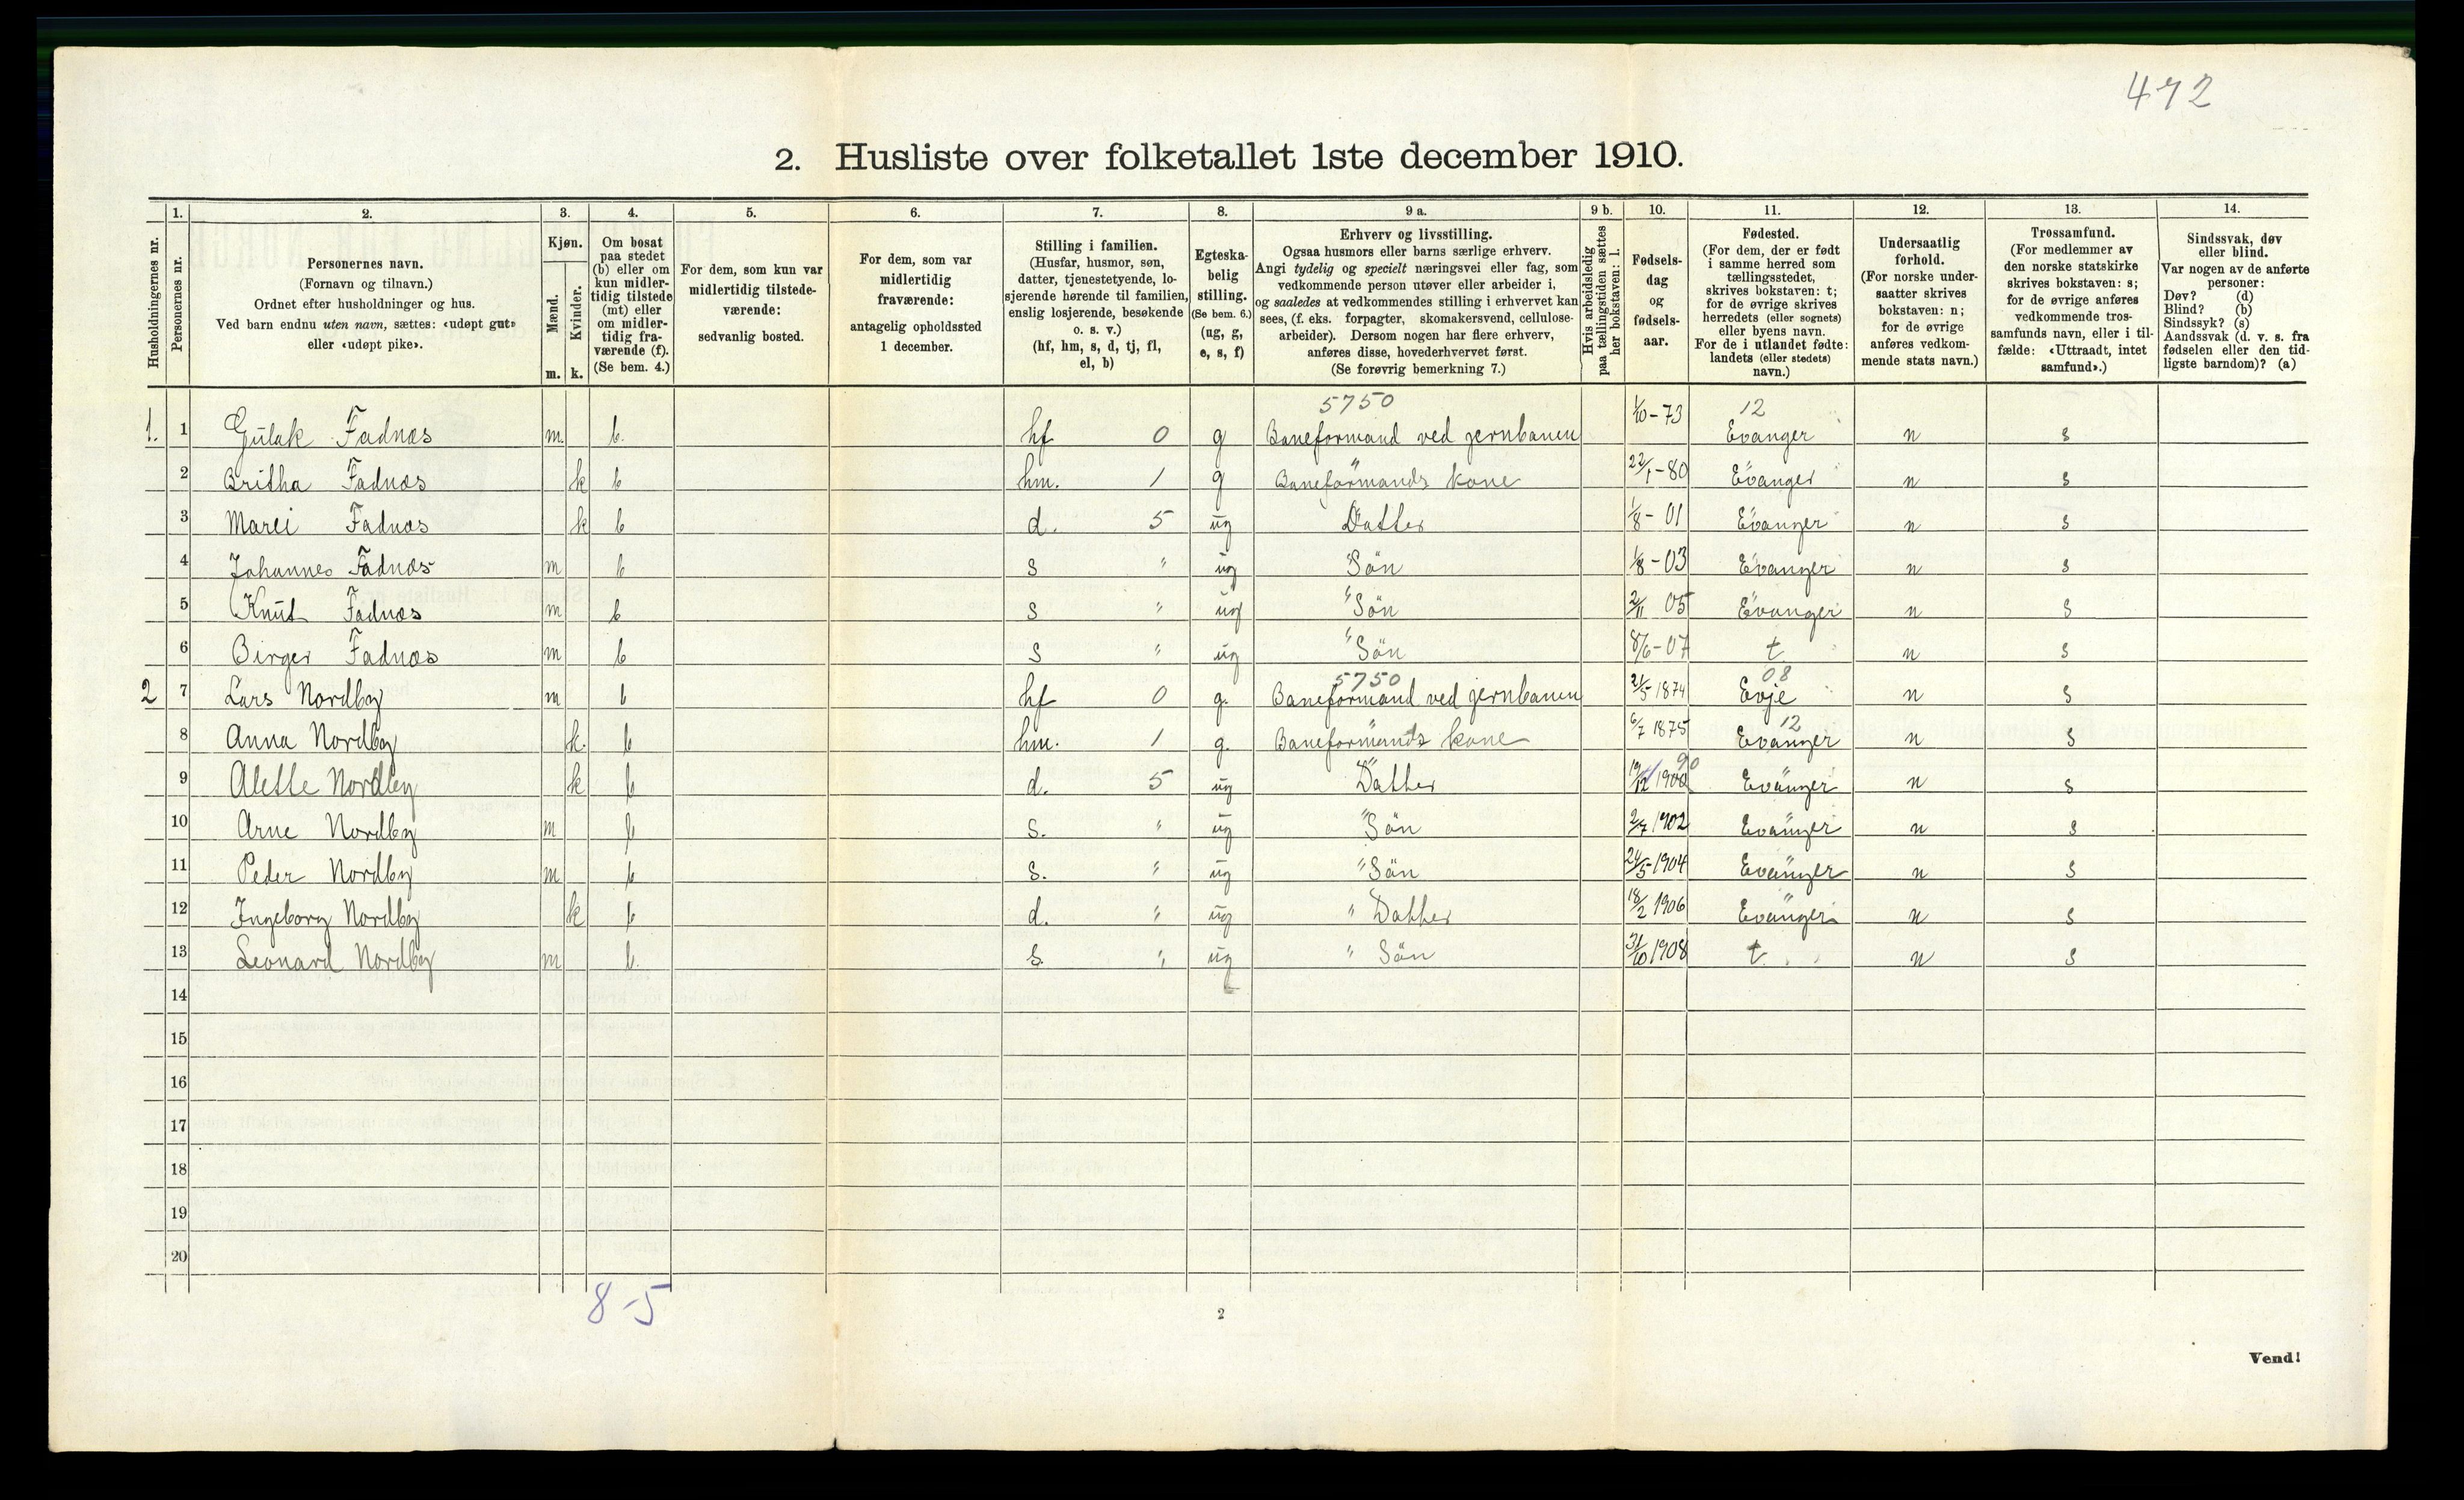 472
2. Husliste over folketallet 1ste december 1910.
Husholdningernes nr.
1.
Personernes nr.
2.
Personernes navn.
(Fornavn og tilnavn.)
Ordnet efter husholdninger og hus.
Ved barn endnu uten navn, sættes: «udøpt gut»
eller «udøpt pike».
3.
Kjøn.
Mænd.
Kvinder.
m. k.
4.
Om bosat
paa stedet
(b) eller om
kun midler-
tidig tilstede
(mt) eller
om midler-
tidig fra-
værende (f).
(Se bem. 4.)
5.
For dem, som kun var
midlertidig tilstede-
værende:
sedvanlig bosted.
6.
For dem, som var
midlertidig
fraværende:
antagelig opholdssted
1 december.
7.
Stilling i familien.
(Husfar, husmor, søn,
datter, tjenestetyende, lo-
sjerende hørende til familien,
enslig losjerende, besøkende
o. s. v.)
(hf, hm, s, d, tj, fl,
el, b)
8.
Egteska-
belig
stilling.
(Se bem. 6.)
(ug, g,
e, s, f)
9 a.
Erhverv og livsstilling.
Ogsaa husmors eller barns særlige erhverv.
Angi tydelig og specielt næringsvei eller fag, som
vedkommende person utøver eller arbeider i,
og saaledes at vedkommendes stilling i erhvervet kan
sees, (f. eks. forpagter, skomakersvend, cellulose-
arbeider). Dersom nogen har flere erhverv,
anføres disse, hovederhvervet først.
(Se forøvrig bemerkning 7.)
9 b.
Hvis arbeidsledig
paa tællingstiden sættes
her bokstaven: l.
10.
Fødsels-
dag
og
fødsels-
aar.
11.
Fødested.
(For dem, der er født
i samme herred som
tællingsstedet,
skrives bokstaven: t;
for de øvrige skrives
herredets (eller sognets)
eller byens navn.
For de i utlandet fødte:
landets (eller stedets)
navn.)
12.
Undersaatlig
forhold.
(For norske under-
saatter skrives
bokstaven: n;
for de øvrige
anføres vedkom-
mende stats navn.)
13.
Trossamfund.
(For medlemmer av
den norske statskirke
skrives bokstaven: s;
for de øvrige anføres
vedkommende tros-
samfunds navn, eller i til-
fælde: «Uttraadt, intet
samfund».)
14.
Sindssvak, døv
eller blind.
Var nogen av de anførte
personer:
Døv? (d)
Blind? (b)
Sindssyk? (s)
Aandssvak (d. v. s. fra
fødselen eller den tid-
ligste barndom)? (a)
5750 12
1. 1 Gulak Fadnæs m. b. hf 0 g Baneformand ved jernbanen 1/10-73 Evanger n s
2 Britha Fadnæs k b hm. 1 g Baneformands kone 22/1-80 Evanger n s
3 Marei Fadnæs k b d. 5 ug Datter 1/8-01 Evanger n s
4 Johannes Fadnæs m b s " ug Sön 1/8-03 Evanger n s
5 Knut Fadnæs m b s " ug " Sön 2/11 05 Evanger n s
6 Birger Fadnæs m b s " ug " Sön 8/6-07 t n s
5750 08
2 7 Lars Nordby m b hf 0 g. Baneformand ved jernbanen 21/5 1874 Evje n s
12
8 Anna Nordby k. b hm. 1 g. Baneformands kone 6/7 1875 Evanger n s
90
9 Alette Nordby k b d. 5 ug Datter 19/12 1900 Evanger n s
10 Arne Nordby m b s. " ug " Sön 2/7 1902 Evanger n s
11 Peder Nordby m b s. " ug " Sön 24/5-1904 Evanger n s
12 Ingeborg Nordby k b d. " ug " Datter 18/2 1906 Evanger n s
13 Leonard Nordby m b. s. " ug " Sön 31/10 1908 t. n s
14
15
16
17
18
19
20
8-5
2
Vend!